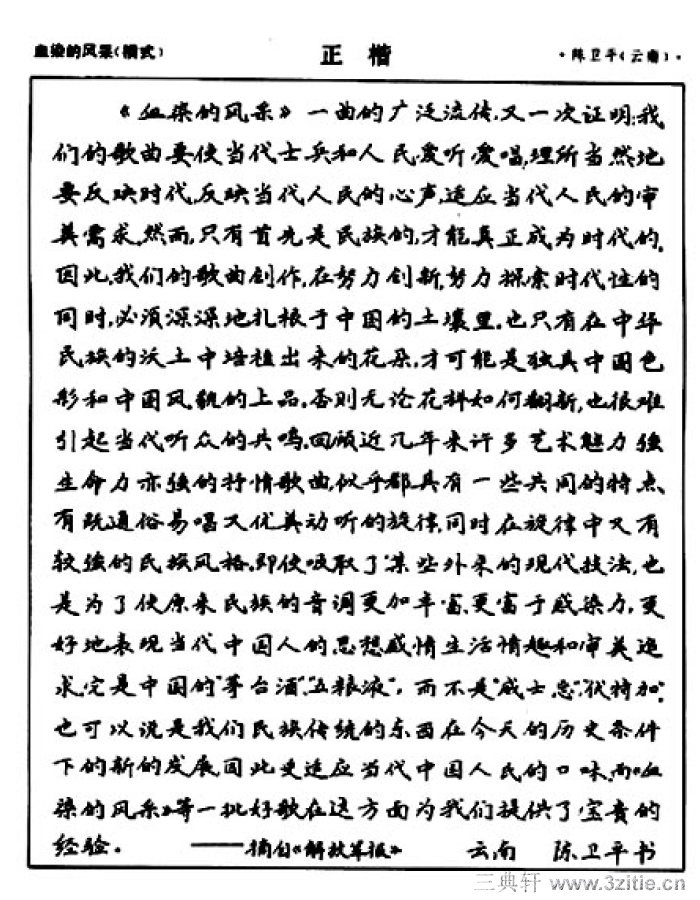 血染的风采(横式)
正楷
·陈卫平(云南)·
《血染的风采》一曲的广泛流传,又一次证明:我
们的歌曲要使当代士兵和人民爱听爱唱,理所当然地
要反映时代,反映当代人民的心声,适应当代人民的审
美需求,然而,只有首先是民族的,才能真正成为时代的,
因此,我们的歌曲创作,在努力创新,努力探索时代性的
同时,必须深深地扎根于中国的土壤里,也只有在中华
民族的沃土中培植出来的花朵,才可能是独具中国色
彩和中国风貌的上品,否则无论花样如何翻新,也很难
引起当代听众的共鸣,回顾近几年来许多艺术魅力强
生命力亦强的抒情歌曲,似乎都具有一些共同的特点,
有既通俗易唱又优美动听的旋律,同时在旋律中又有
较强的民族风格,即使吸取了某些外来的现代技法,也
是为了使原来民族的音调更加丰富,更富于感染力,更
好地表现当代中国人的思想感情生活情趣和审美追
求,它是中国的“茅台酒”、“五粮液”,而不是“威士忌”、“伏特加”,
也可以说是我们民族传统的东西在今天的历史条件
下的新的发展,因此更适应当代中国人民的口味,而《血
染的风采》等一批好歌在这方面为我们提供了宝贵的
经验。 ——摘自《解放军报》 云南 陈卫平书
三典轩 www.3zitie.cn